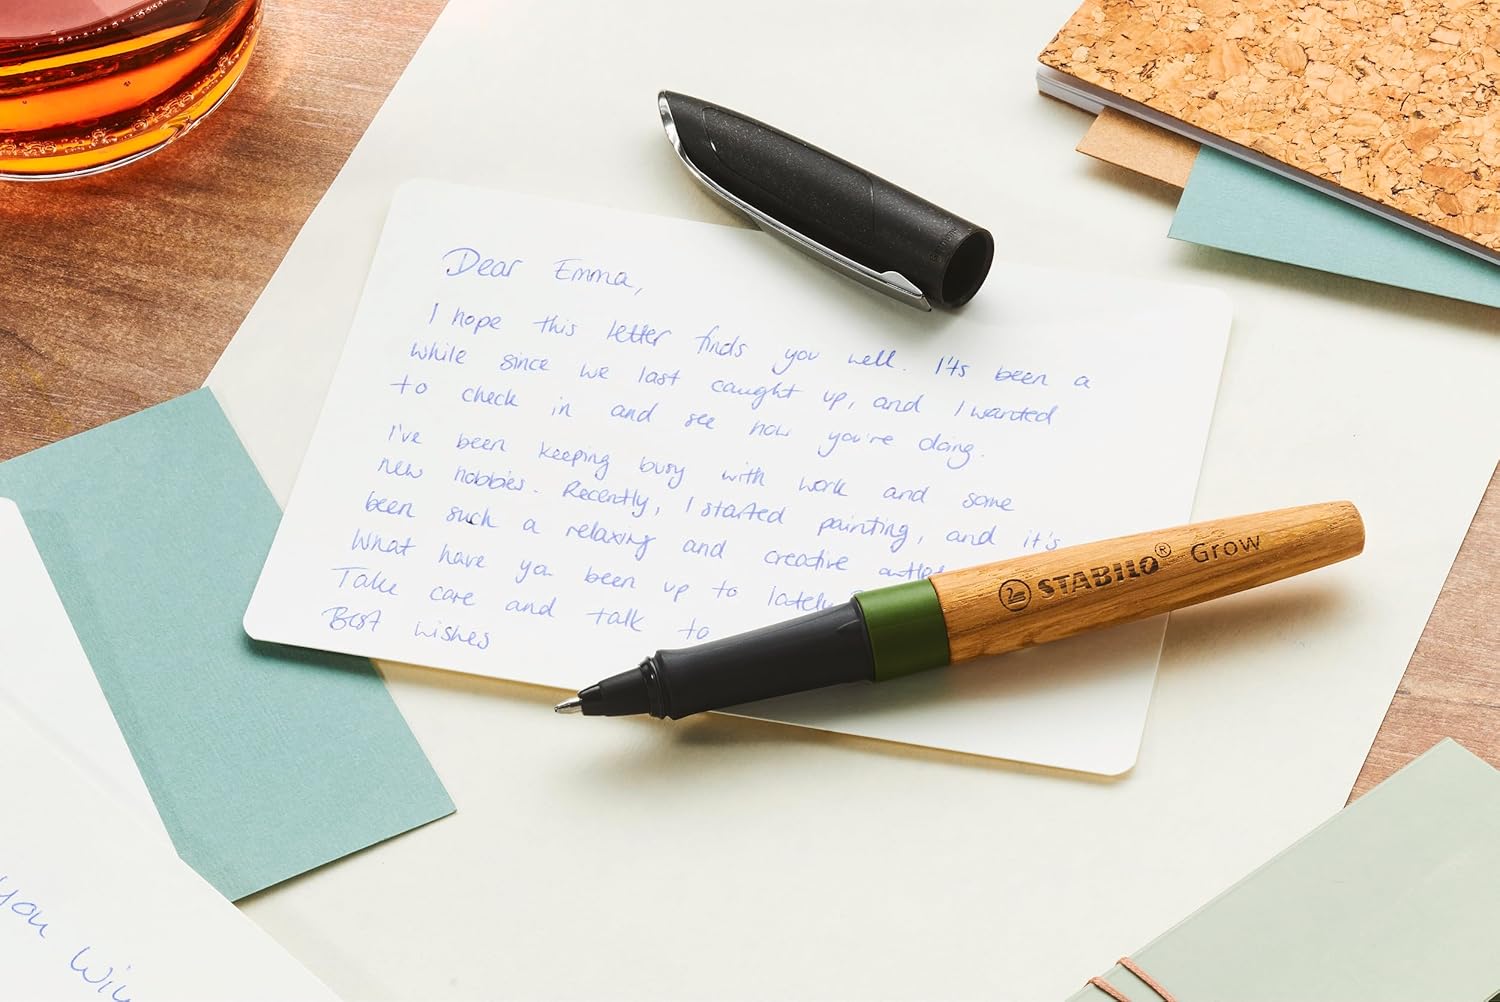 Dear Emma,
I hope this letter finds you well. I'ts been a
while since we last caught up, and I wanted
to check in and see how you're doing.
I've been keeping busy with work and some
new hobbies. Recently, I started painting, and it's
been such a relaxing and creative outlet
What have you been up to lately
Take care and talk to
Best wishes
STABILO® Grow
you